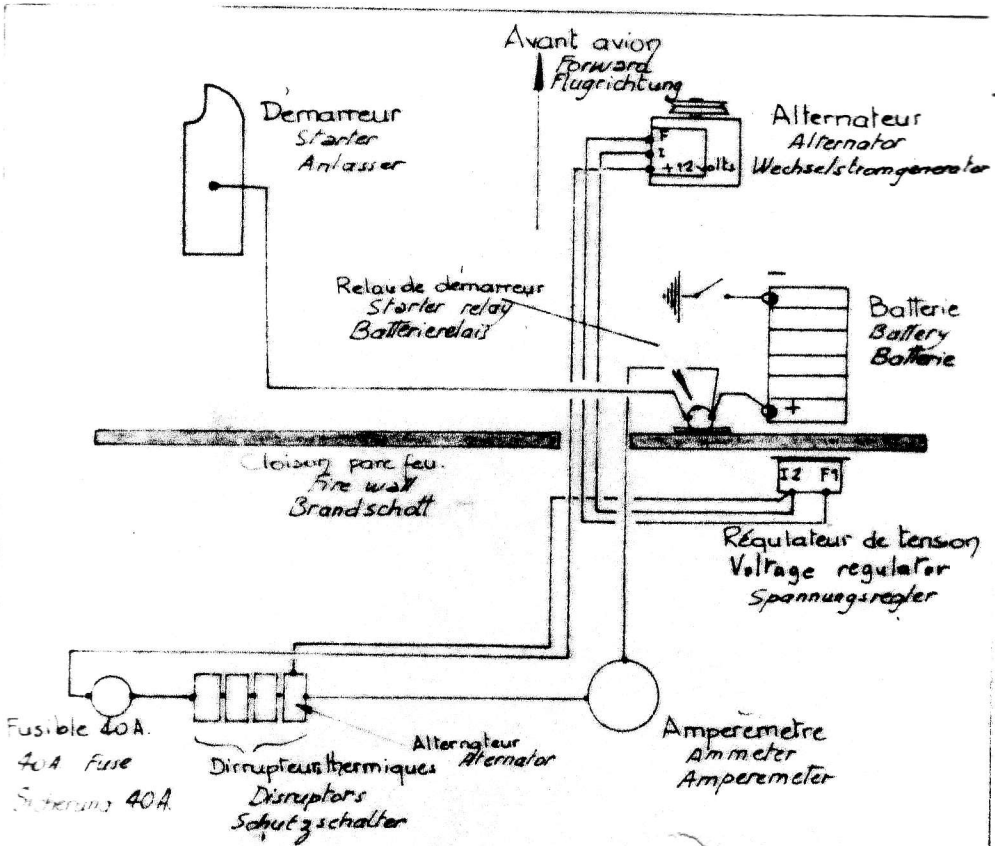 Avant avion
Forward
Flugrichtung
Démarreur
Starter
Anlasser
Alternateur
Alternator
Wechselstromgenerator
F
I
+12 volts
Relau de démarreur
Starter relay
Batterierelais
−
+
Batterie
Battery
Batterie
Cloison pare feu.
Fire wall
Brandschott
I2 F1
Régulateur de tension
Voltage regulator
Spannungsregler
Fusible 40A.
40A Fuse
Sicherung 40A.
Dirrupteurs thermiques
Disruptors
Schutzschalter
Alternateur
Aternator
Amperemetre
Ammeter
Amperemeter